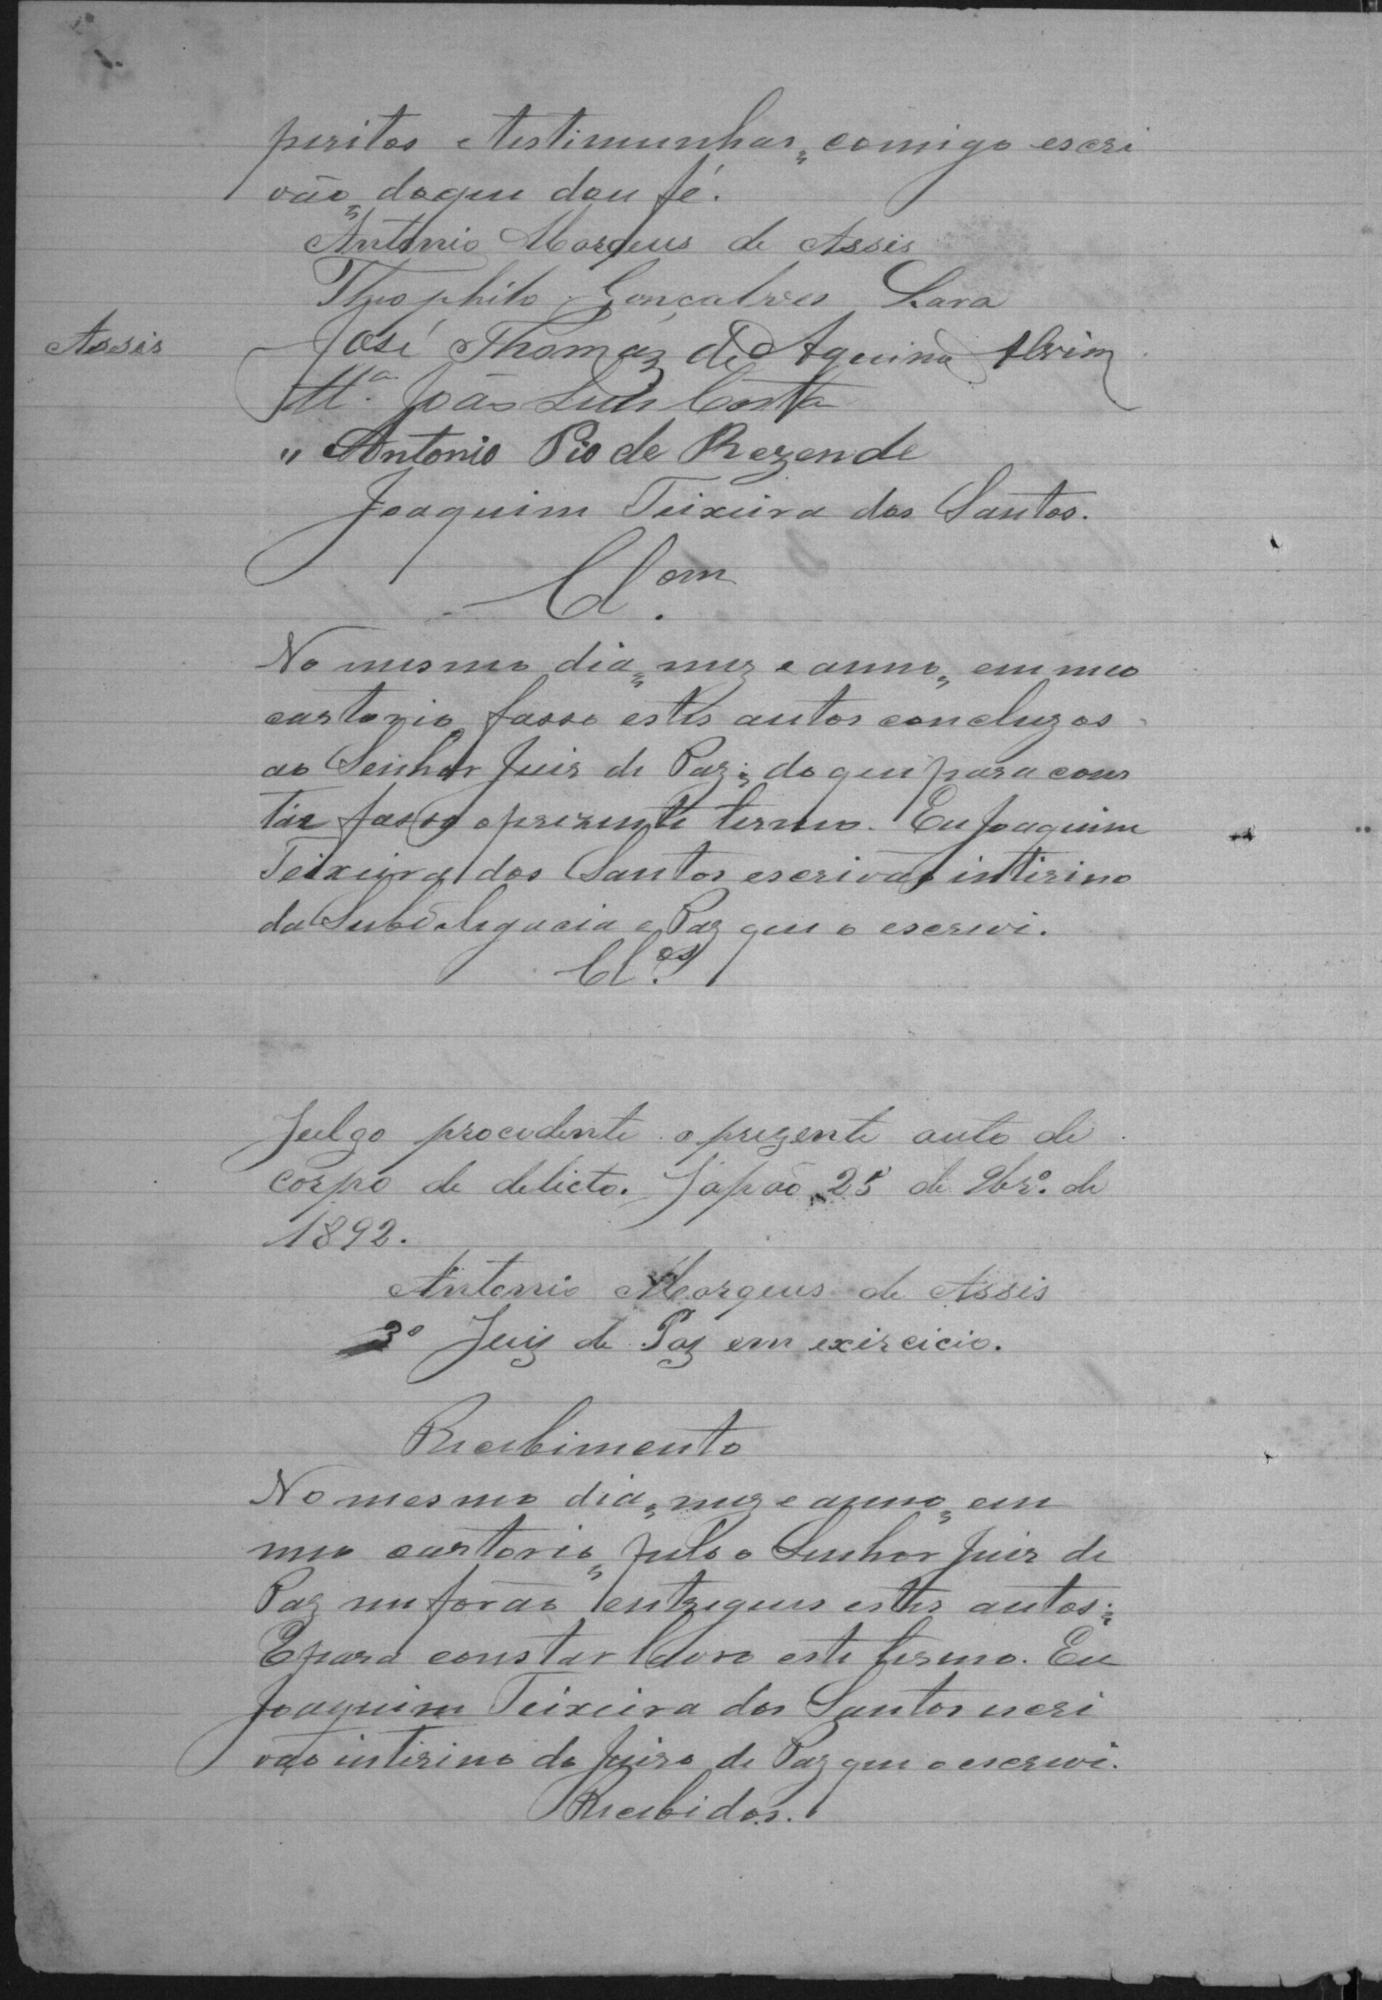 peritos e testimunhas, comigo escri
vão, doque dou fé.
Antonio Marques de Assis
Theophilo Gonçalves Lara
Assis
José Thomáz de Aquino Alvim
Ttª. João Luis Costa
" Antonio Pio de Rezende
Joaquim Teixeira dos Santos.
Cl.om
No mesmo dia, mez e anno, em meo
cartorio, fasso estes autos concluzos
ao Senhor Juis de Paz; do que para cons
tar fasso o prezente termo. Eu Joaquim
Teixeira dos Santos escrivão intirino
da Subdelegacia e Paz que o escrevi.
Cl.os
Julgo procedente o prezente auto de
corpo de delicto. Japão 25 de 9br.º de
1892.
Antonio Marques de Assis
3º Juiz de Paz em exircicio.
Recebimento
No mesmo dia, mez e anno, em
meo cartorio, pelo o Senhor Juis de
Paz me forão entregues estes autos;
E para constar lavro este termo. Eu
Joaquim Teixeira dos Santos escri
vão intirino do Juiso de Paz que o escrevi.
Recebidos.